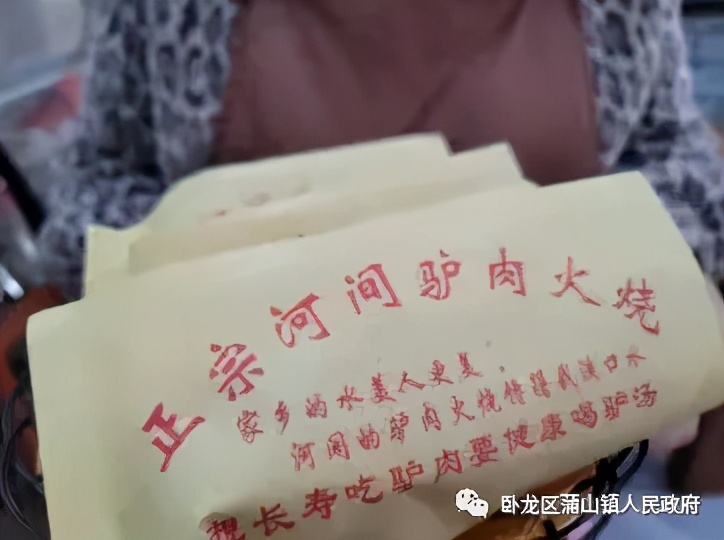 正宗河间驴肉火烧
家乡的水美人更美.
河间的驴肉火烧馋得我流口水
想长寿吃驴肉要健康喝驴汤
卧龙区蒲山镇人民政府